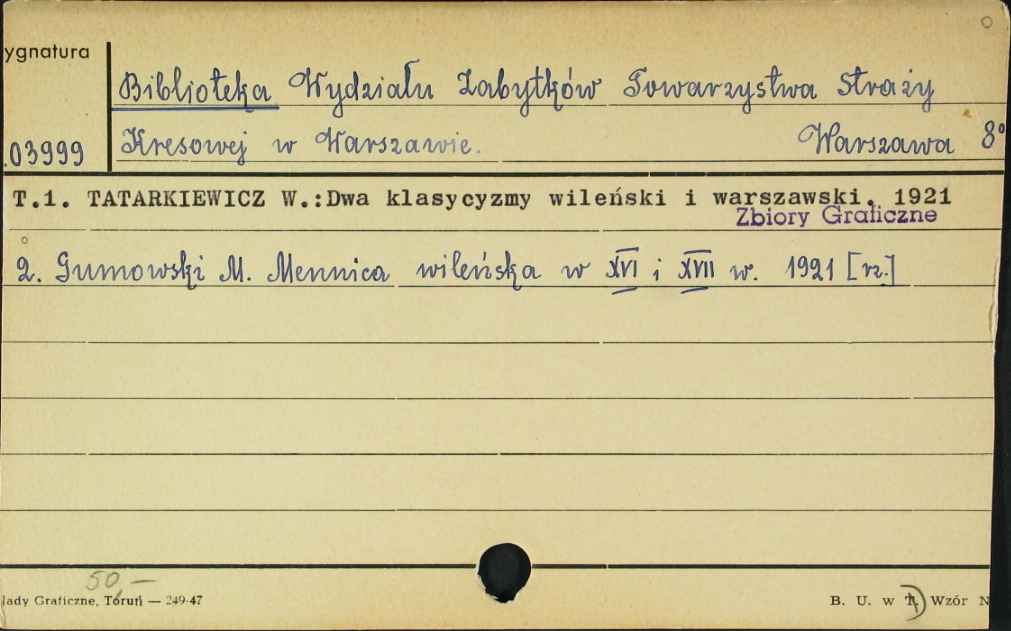 ygnatura
Biblioteka Wydziału Zabytków Towarzystwa Straży
.03999 Kresowej w Warszawie. Warszawa 8°
T.1. TATARKIEWICZ W.:Dwa klasycyzmy wileński i warszawski. 1921
Zbiory Graficzne
2. Gumowski M. Mennica wileńska w XVI i XVII w. 1921 [rz.]
50,—
lady Graficzne, Toruń — 249-47
B. U. w T. Wzór N